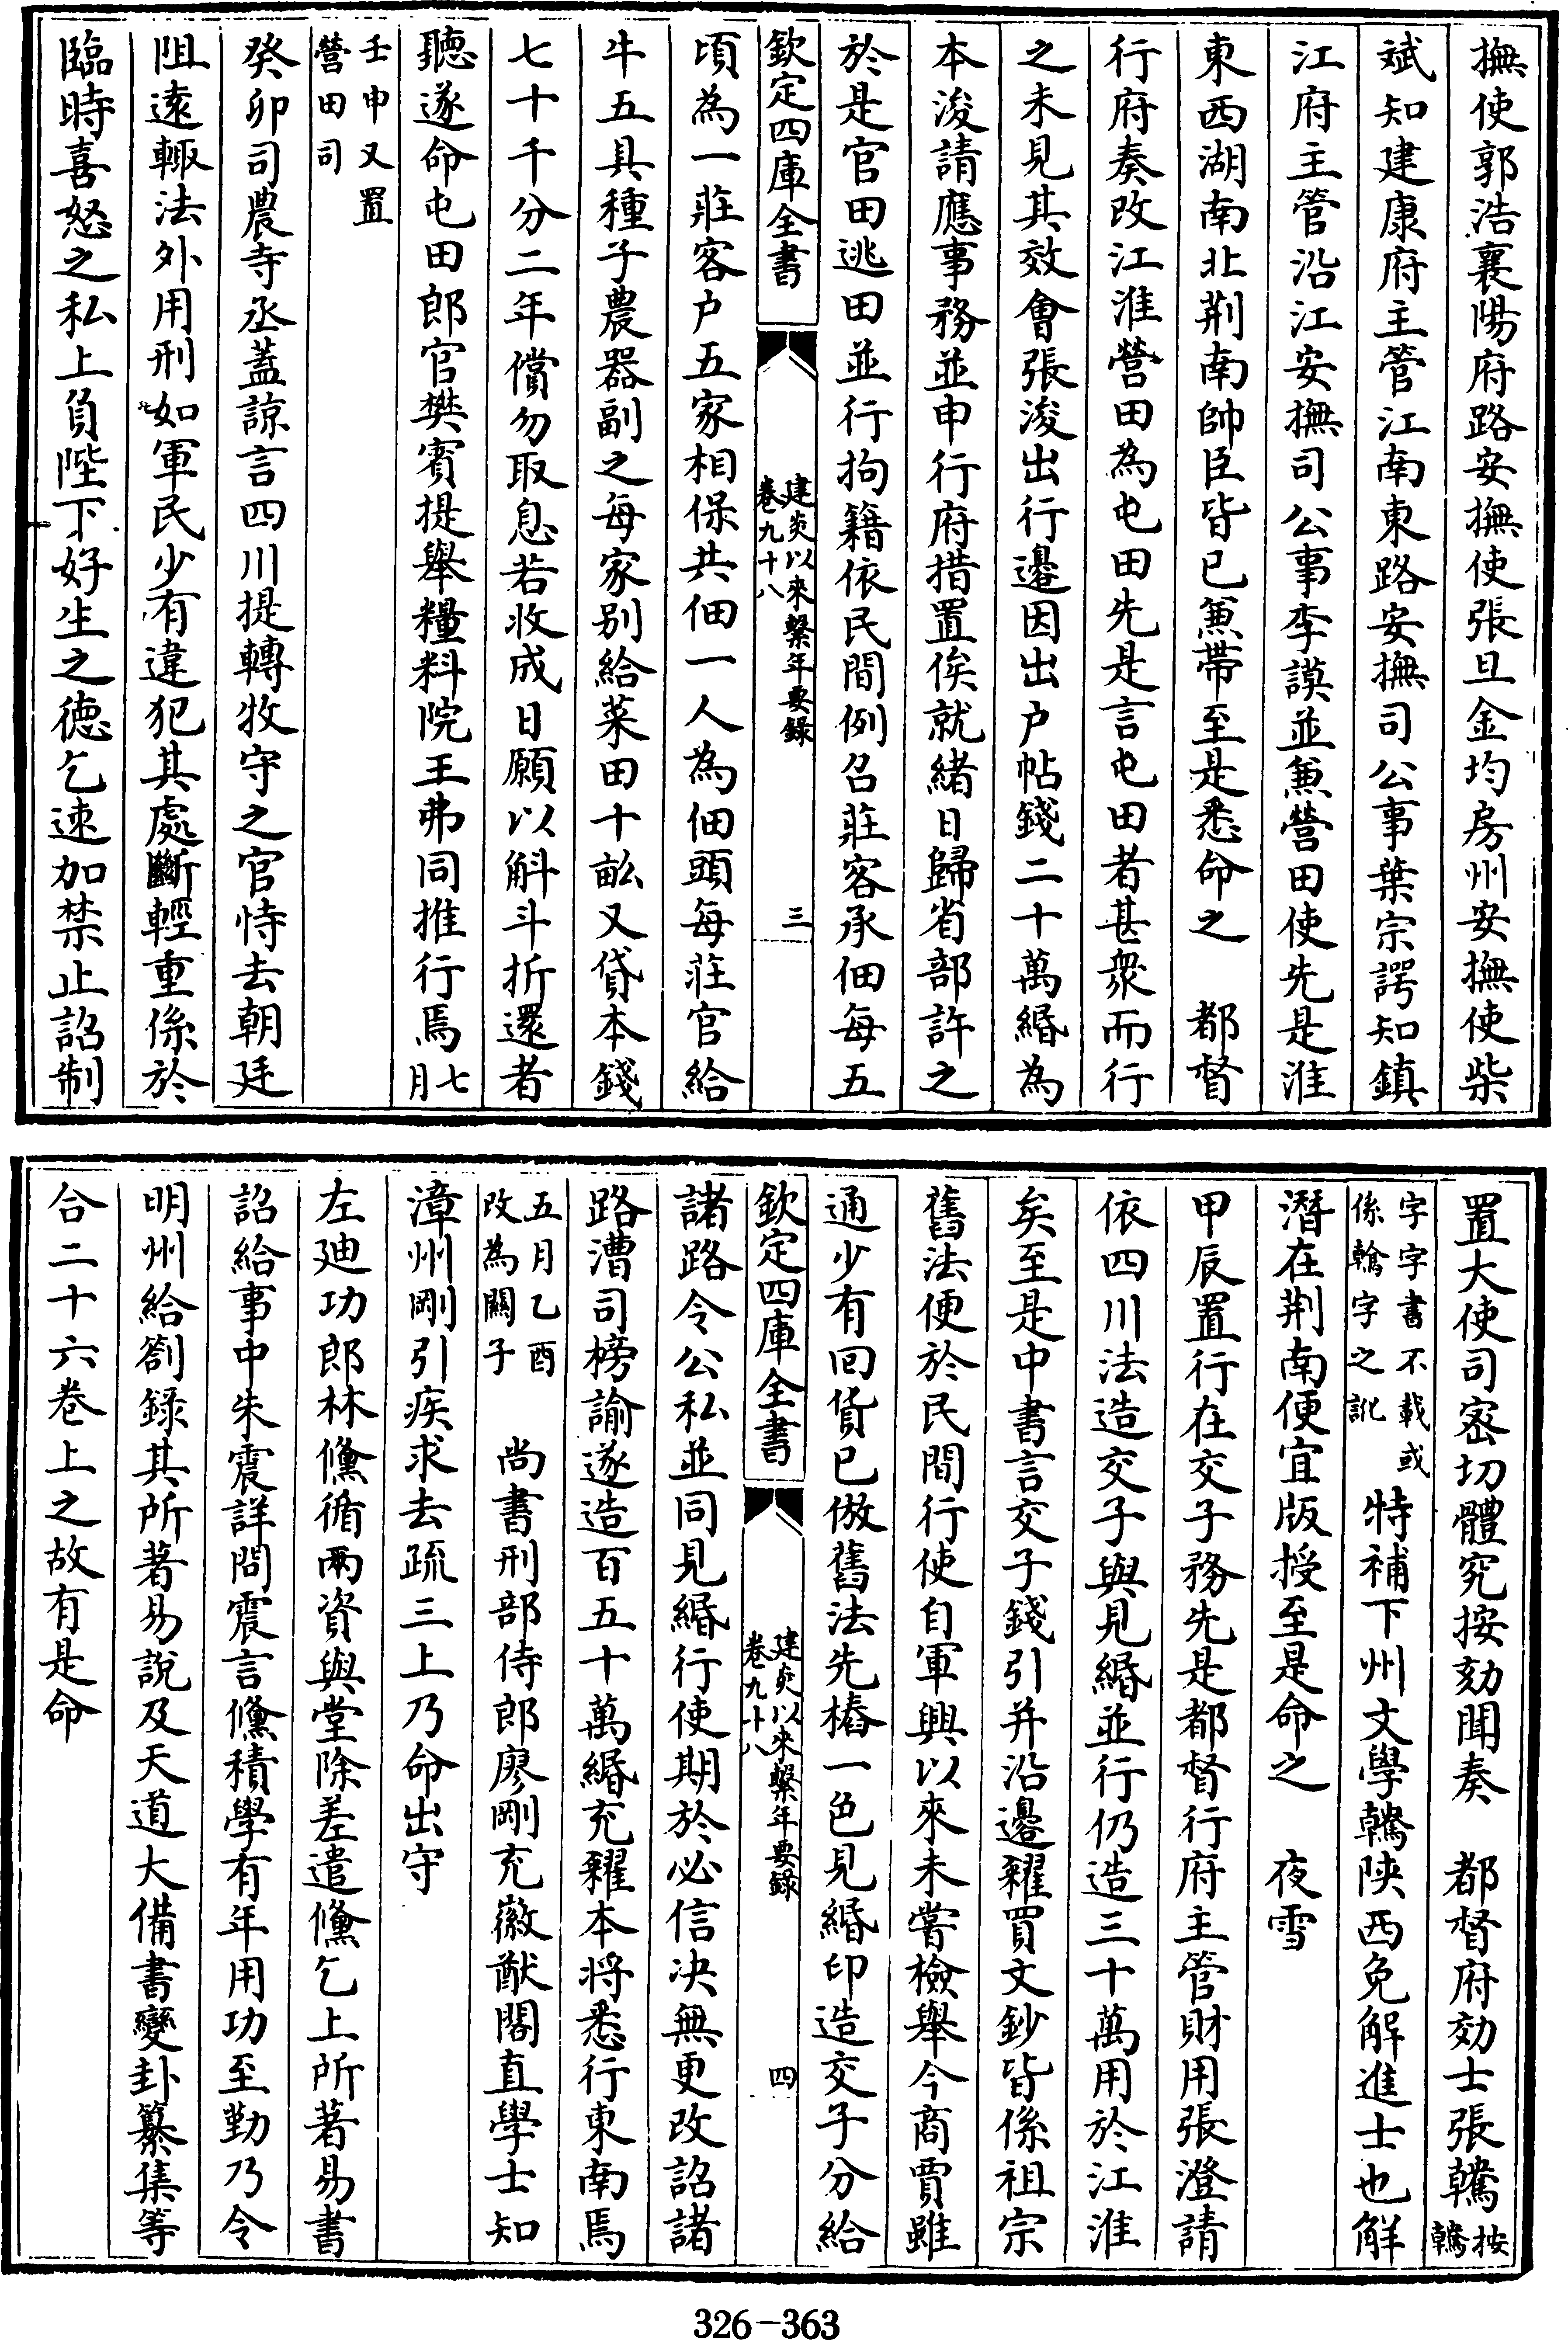 撫使郭浩襄陽府路安撫使張旦金均房州安撫使柴
斌知建康府主管江南東路安撫司公事葉宗諤知鎮
江府主管沿江安撫司公事李謨並兼營田使先是淮
東西湖南北荆南帥臣皆已兼帶至是悉命之　都督
行府奏改江淮營田為屯田先是言屯田者甚衆而行
之未見其效會張浚出行邊因出户帖錢二十萬緡為
本浚請應事務並申行府措置俟就緒日歸省部許之
於是官田逃田並行拘籍依民間例召莊客承佃每五
欽定四庫全書
建炎以來繫年要錄
卷九十八
三
頃為一莊客户五家相保共佃一人為佃頭每莊官給
牛五具種子農器副之每家别給菜田十畝又貸本錢
七十千分二年償勿取息若收成日願以斛斗折還者
聽遂命屯田郎官樊賓提舉糧料院王弗同推行焉七
月
壬申又置
營田司
癸卯司農寺丞蓋諒言四川提轉牧守之官恃去朝廷
阻遠輙法外用刑如軍民少有違犯其處斷輕重係於
臨時喜怒之私上負陛下好生之德乞速加禁止詔制
置大使司密切體究按劾聞奏　都督府効士張䮾按
䮾
字字書不載或
係翰字之訛
特補下州文學䮾陝西免解進士也解
潛在荆南便宜版授至是命之　夜雪
甲辰置行在交子務先是都督行府主管財用張澄請
依四川法造交子與見緡並行仍造三十萬用於江淮
矣至是中書言交子錢引并沿邊糴買文鈔皆係祖宗
舊法便於民間行使自軍興以來未嘗檢舉今商賈雖
通少有回貨已倣舊法先樁一色見緡印造交子分給
欽定四庫全書
建炎以來繫年要錄
卷九十八
四
諸路令公私並同見緡行使期於必信决無更改詔諸
路漕司榜諭遂造百五十萬緡充糴本将悉行東南焉
五月乙酉
改為關子
尚書刑部侍郎廖剛充徽猷閣直學士知
漳州剛引疾求去疏三上乃命出守
左廸功郎林儵循兩資與堂除差遣儵乞上所著易書
詔給事中朱震詳問震言儵積學有年用功至勤乃令
明州給劄錄其所著易説及天道大備書變卦纂集等
合二十六卷上之故有是命
326-363